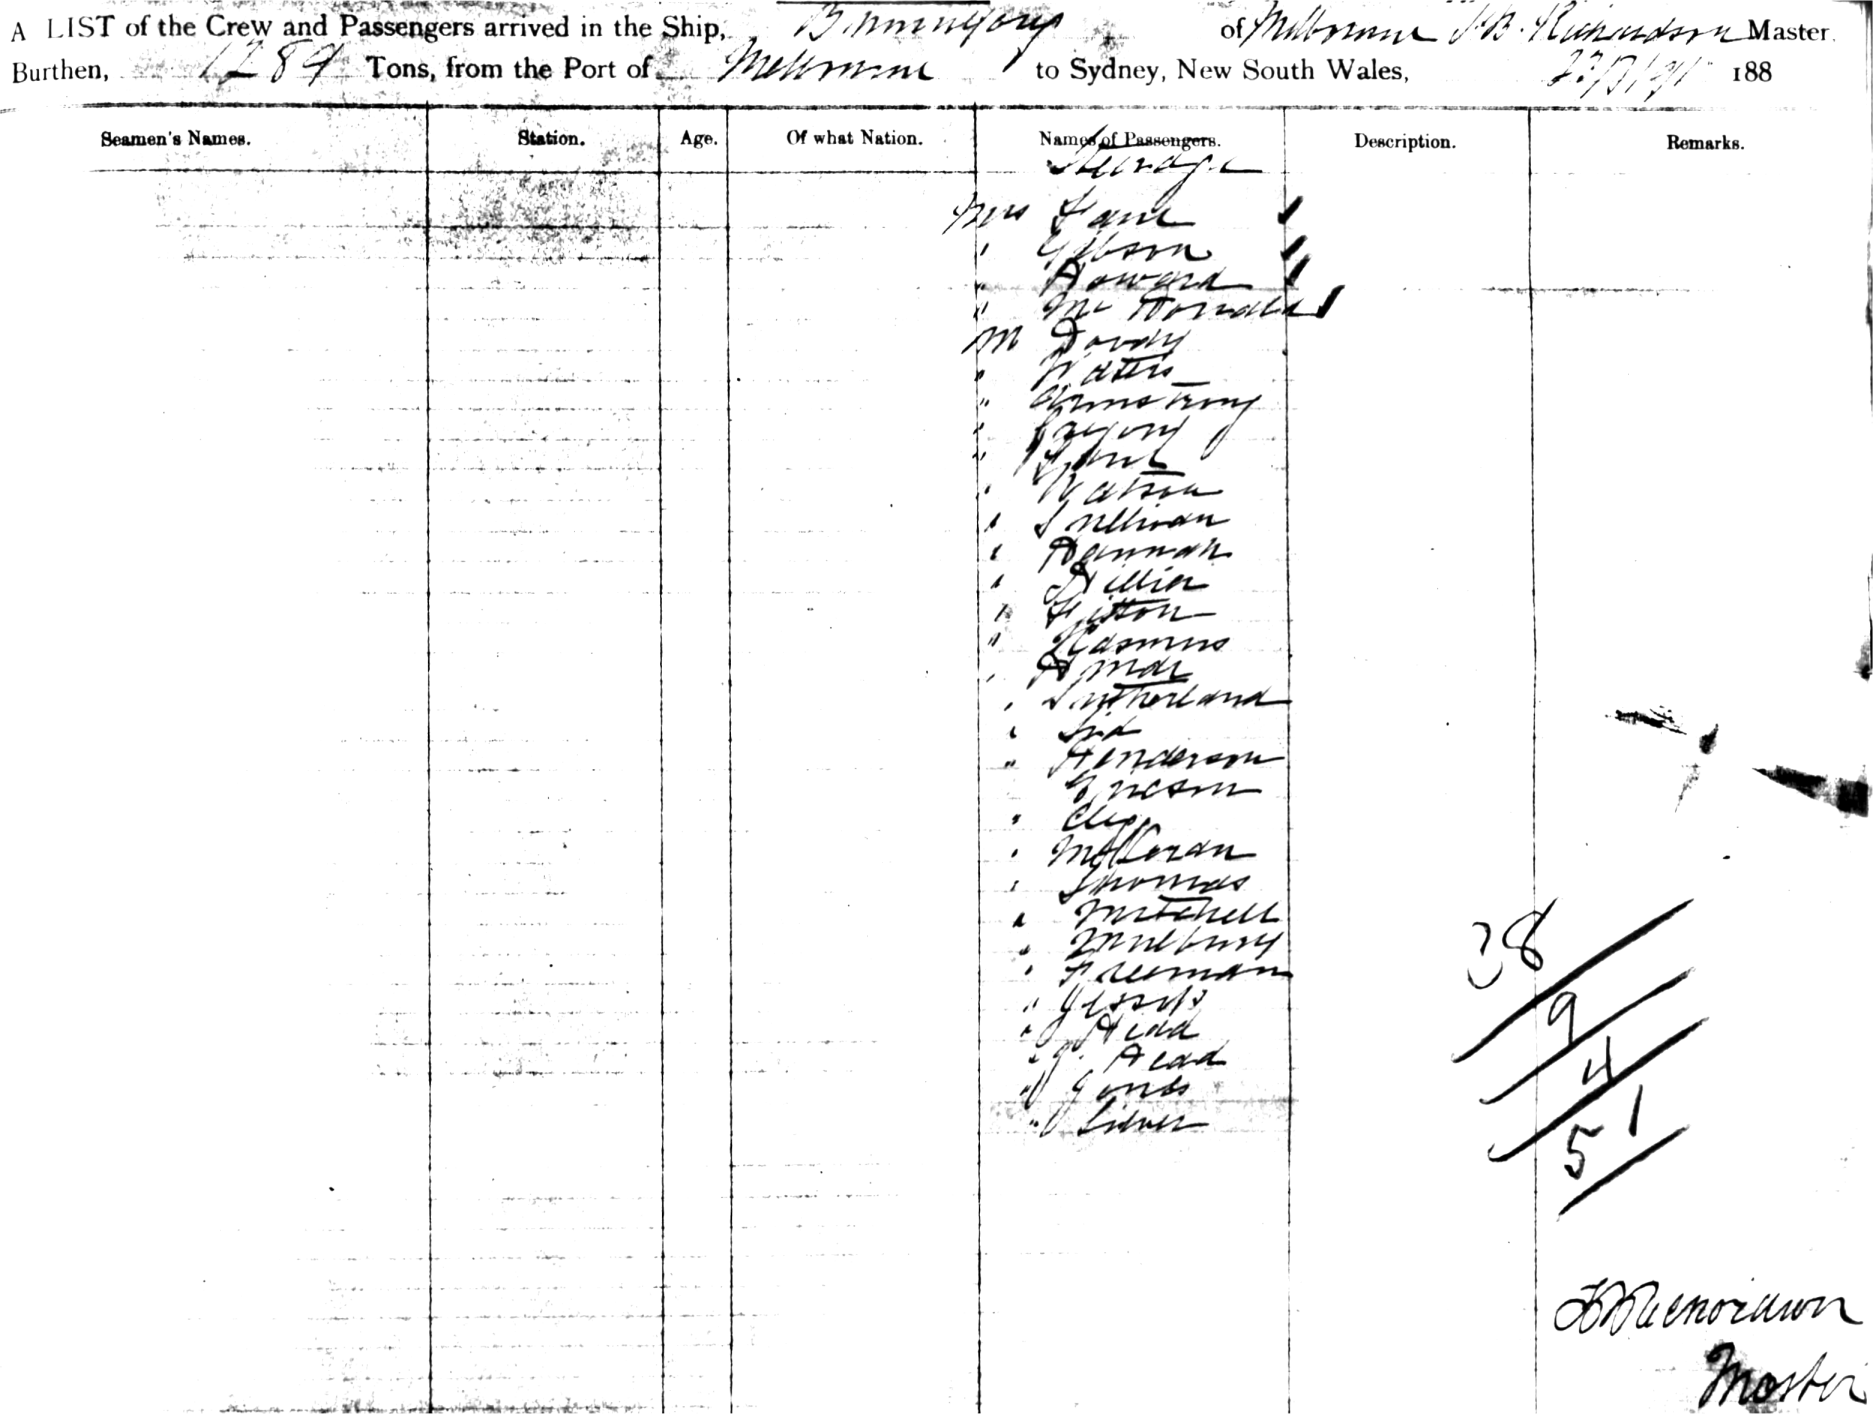 A LIST of the Crew and Passengers arrived in the Ship, Buninyong of Melbourne J B. Richardson Master.
Burthen, 1289 Tons, from the Port of Melbourne to Sydney, New South Wales, 188
Seamen's Names. Station. Age. Of what Nation. Names of Passengers. Description. Remarks.
Steerage
Mrs
" Gibson
" Howard
" Mc Donald
M Doody
" Watts
" Armstrong
" Gregory
" Grant
" Watson
" Sullivan
" Hannah
" Hillier
" Fitton
" Rasmus
"
" Sutherland
"
" Henderson
Ericson
"
"
" Thomas
" Mitchell
" Milbury
" Freeman
" Jessop
" Head
" J. Head
" Jones
" Silver
38
9
4
51
J B Richardson
Master